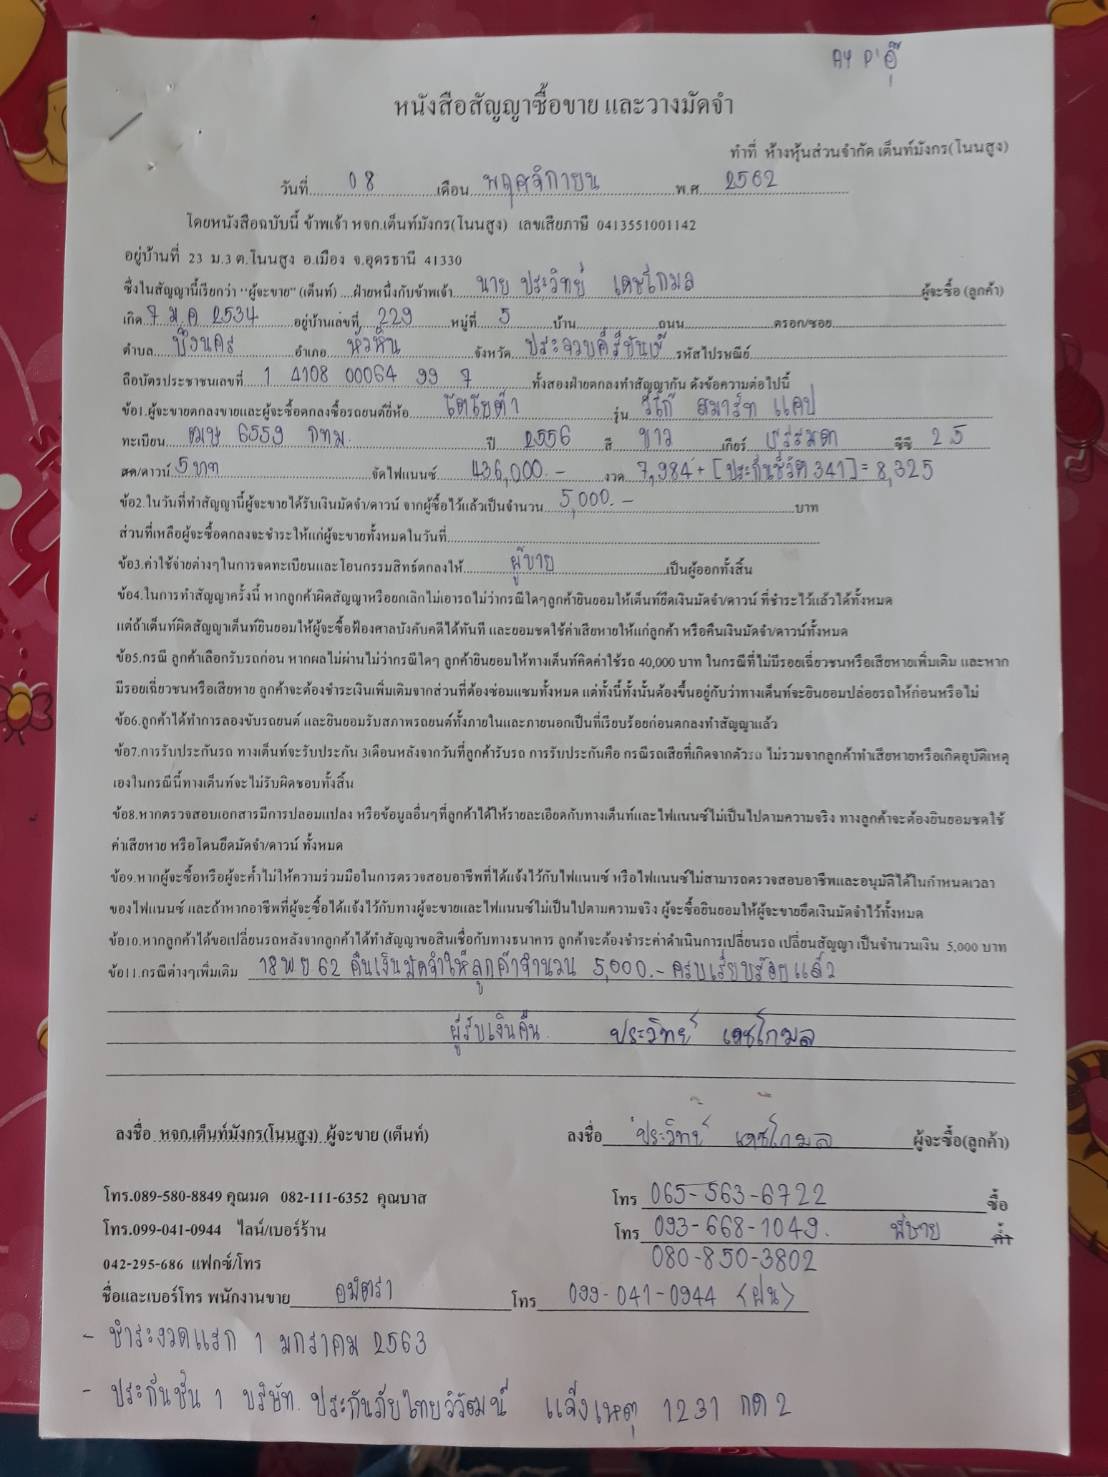 AY P'อุ๊
หนังสือสัญญาซื้อขาย และวางมัดจำ
ทำที่ ห้างหุ้นส่วนจำกัด เต็นท์มังกร(โนนสูง)
วันที่ 08 เดือน พฤศจิกายน พ.ศ. 2562
โดยหนังสือฉบับนี้ ข้าพเจ้า หจก.เต็นท์มังกร(โนนสูง) เลขเสียภาษี 0413551001142
อยู่บ้านที่ 23 ม.3 ต.โนนสูง อ.เมือง จ.อุดรธานี 41330
ซึ่งในสัญญานี้เรียกว่า "ผู้จะขาย" (เต็นท์) ....ฝ่ายหนึ่งกับข้าพเจ้า นาย ประวิทย์ เดชโกมล ผู้จะซื้อ (ลูกค้า)
เกิด 7 ม.ค 2534 อยู่บ้านเลขที่ 229 หมู่ที่ 5 บ้าน ถนน ตรอก/ซอย
ตำบล บึงนคร อำเภอ หัวหิน จังหวัด ประจวบคีรีขันธ์ รหัสไปรษณีย์
ถือบัตรประชาชนเลขที่ 1 4108 00064 99 7 ทั้งสองฝ่ายตกลงทำสัญญากัน ดังข้อความต่อไปนี้
ข้อ1.ผู้จะขายตกลงขายและผู้จะซื้อตกลงซื้อรถยนต์ยี่ห้อ โตโยต้า รุ่น วีโก้ สมาร์ท แคป
ทะเบียน ฒษ 6559 กทม. ปี 2556 สี ขาว เกียร์ ธรรมดา ซีซี 2.5
สด/ดาวน์ 5 บาท จัดไฟแนนซ์ 436,000.- งวด 7,984 + [ประกันชีวิต 341] = 8,325
ข้อ2.ในวันที่ทำสัญญานี้ผู้จะขายได้รับเงินมัดจำ/ดาวน์ จากผู้ซื้อไว้แล้วเป็นจำนวน 5,000.- บาท
ส่วนที่เหลือผู้จะซื้อตกลงจะชำระให้แก่ผู้จะขายทั้งหมดในวันที่
ข้อ3.ค่าใช้จ่ายต่างๆในการจดทะเบียนและโอนกรรมสิทธิ์ตกลงให้ ผู้ขาย เป็นผู้ออกทั้งสิ้น
ข้อ4.ในการทำสัญญาครั้งนี้ หากลูกค้าผิดสัญญาหรือยกเลิกไม่เอารถไม่ว่ากรณีใดๆลูกค้ายินยอมให้เต็นท์ยึดเงินมัดจำ/ดาวน์ ที่ชำระไว้แล้วได้ทั้งหมด
แต่ถ้าเต็นท์ผิดสัญญาเต็นท์ยินยอมให้ผู้จะซื้อฟ้องศาลบังคับคดีได้ทันที และยอมชดใช้ค่าเสียหายให้แก่ลูกค้า หรือคืนเงินมัดจำ/ดาวน์ทั้งหมด
ข้อ5.กรณี ลูกค้าเลือกรับรถก่อน หากผลไม่ผ่านไม่ว่ากรณีใดๆ ลูกค้ายินยอมให้ทางเต็นท์คิดค่าใช้รถ 40,000 บาท ในกรณีที่ไม่มีรอยเฉี่ยวชนหรือเสียหายเพิ่มเติม และหาก
มีรอยเฉี่ยวชนหรือเสียหาย ลูกค้าจะต้องชำระเงินเพิ่มเติมจากส่วนที่ต้องซ่อมแซมทั้งหมด แต่ทั้งนี้ทั้งนั้นต้องขึ้นอยู่กับว่าทางเต็นท์จะยินยอมปล่อยรถให้ก่อนหรือไม่
ข้อ6.ลูกค้าได้ทำการลองขับรถยนต์ และยินยอมรับสภาพรถยนต์ทั้งภายในและภายนอกเป็นที่เรียบร้อยก่อนตกลงทำสัญญาแล้ว
ข้อ7.การรับประกันรถ ทางเต็นท์จะรับประกัน 3เดือนหลังจากวันที่ลูกค้ารับรถ การรับประกันคือ กรณีรถเสียที่เกิดจากตัวรถ ไม่รวมจากลูกค้าทำเสียหายหรือเกิดอุบัติเหตุ
เองในกรณีนี้ทางเต็นท์จะไม่รับผิดชอบทั้งสิ้น
ข้อ8.หากตรวจสอบเอกสารมีการปลอมแปลง หรือข้อมูลอื่นๆที่ลูกค้าได้ให้รายละเอียดกับทางเต็นท์และไฟแนนซ์ไม่เป็นไปตามความจริง ทางลูกค้าจะต้องยินยอมชดใช้
ค่าเสียหาย หรือโดนยึดมัดจำ/ดาวน์ ทั้งหมด
ข้อ9.หากผู้จะซื้อหรือผู้จะค้ำไม่ให้ความร่วมมือในการตรวจสอบอาชีพที่ได้แจ้งไว้กับไฟแนนซ์ หรือไฟแนนซ์ไม่สามารถตรวจสอบอาชีพและอนุมัติได้ในกำหนดเวลา
ของไฟแนนซ์ และถ้าหากอาชีพที่ผู้จะซื้อได้แจ้งไว้กับทางผู้จะขายและไฟแนนซ์ไม่เป็นไปตามความจริง ผู้จะซื้อยินยอมให้ผู้จะขายยึดเงินมัดจำไว้ทั้งหมด
ข้อ10.หากลูกค้าได้ขอเปลี่ยนรถหลังจากลูกค้าได้ทำสัญญาขอสินเชื่อกับทางธนาคาร ลูกค้าจะต้องชำระค่าดำเนินการเปลี่ยนรถ เปลี่ยนสัญญา เป็นจำนวนเงิน 5,000 บาท
ข้อ11.กรณีต่างๆเพิ่มเติม 18 พ.ย 62 คืนเงินมัดจำให้ลูกค้าจำนวน 5,000.- ครบเรียบร้อยแล้ว
ผู้รับเงินคืน ประวิทย์ เดชโกมล
ลงชื่อ หจก.เต็นท์มังกร(โนนสูง) ผู้จะขาย (เต็นท์) ลงชื่อ ประวิทย์ เดชโกมล ผู้จะซื้อ(ลูกค้า)
โทร.089-580-8849 คุณมด 082-111-6352 คุณบาส โทร 065-563-6722 ซื้อ
โทร.099-041-0944 ไลน์/เบอร์ร้าน โทร 093-668-1049. พี่ชาย ค้ำ
042-295-686 แฟกซ์/โทร 080-850-3802
ชื่อและเบอร์โทร พนักงานขาย อมิตรา โทร 099-041-0944 <ฝน>
- ชำระงวดแรก 1 มกราคม 2563
- ประกันชั้น 1 บริษัท. ประกันภัยไทยวิวัฒน์ แจ้งเหตุ 1231 กด 2